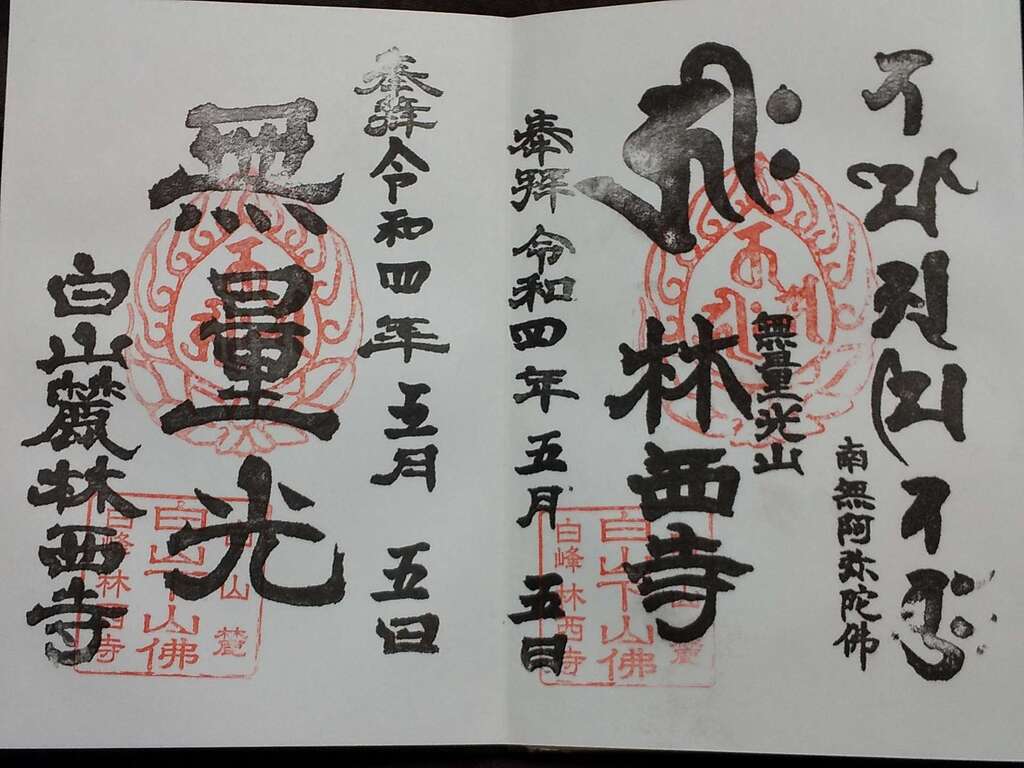 南無阿弥陀佛
無量光山
𑖮𑖿𑖨𑖱𑖾
林西寺
奉拝 令和四年 五月 五日
白山下山佛
白峰林西寺
奉拝 令和四年 五月 五日
無量光
白山麓林西寺
白山下山佛
白峰林西寺